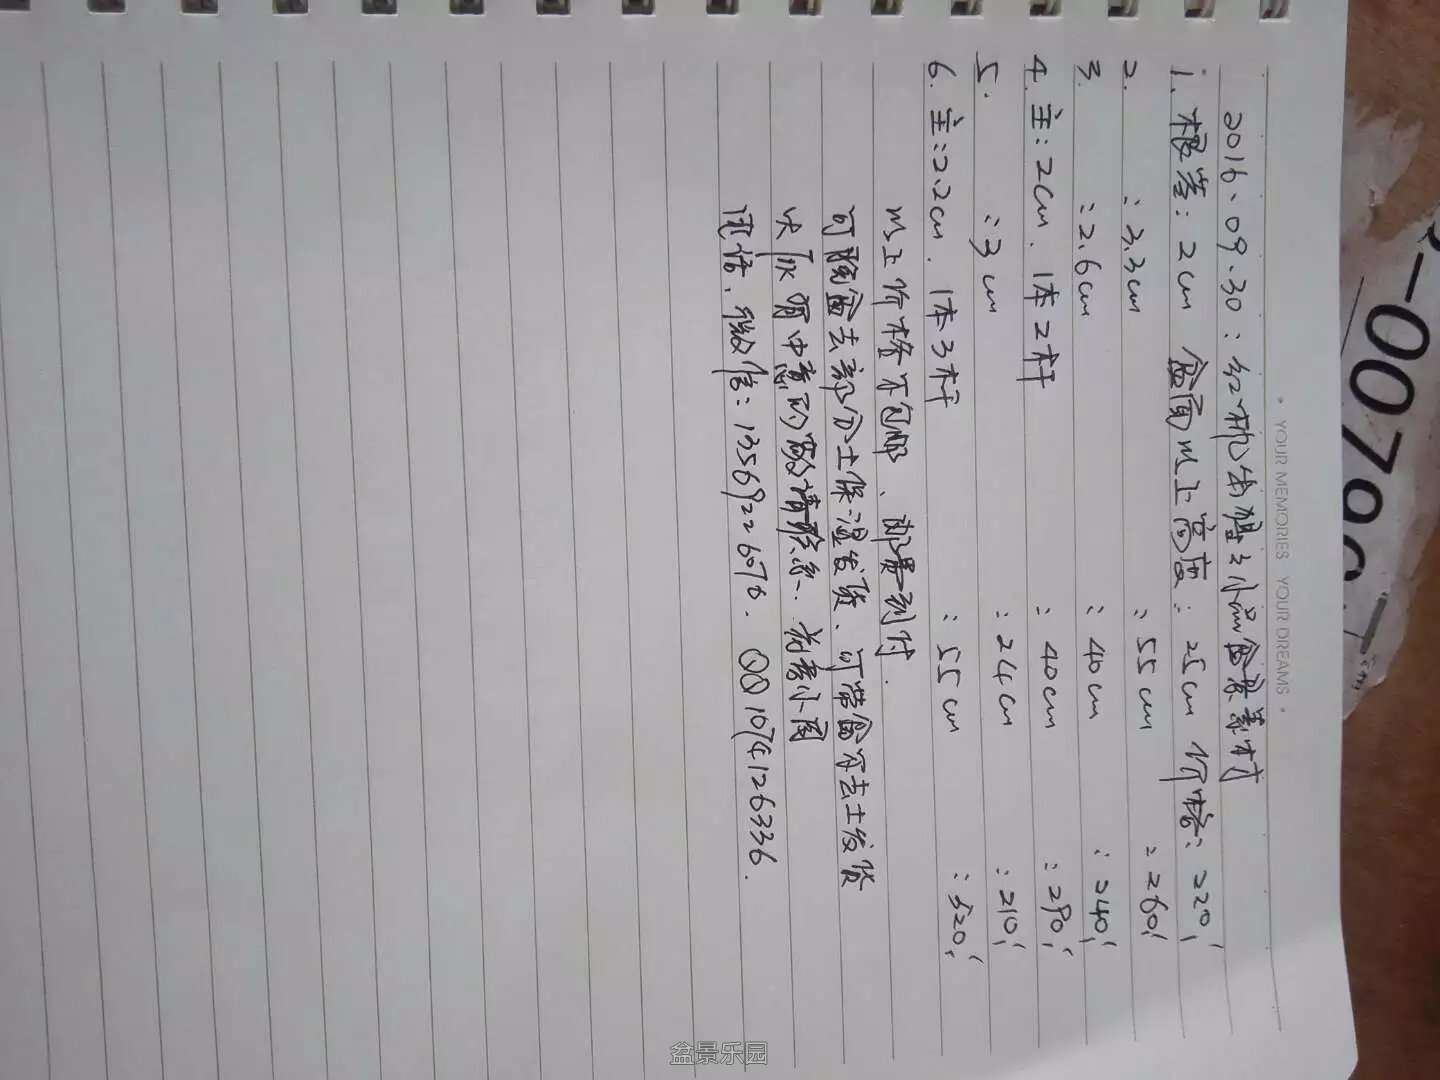 YOUR MEMORIES YOUR DREAMS
2016.09.30:红机出猩之小品盆景素材
1.根茎:2cm 盆面以上高度:25cm 价格:220;
2. :3.3cm :55cm :260;
3. :2.6cm :40cm :240;
4.主:2cm.1本2杆 :40cm :290;
5. :3cm :24cm :210;
6.主:2.2cm.1本3杆 :55cm :320;
以上价格不包邮、邮费到付.
可脱盆去部分土保湿发货、可带盆不去土发货
火 有中意的敬请联系. 小周
电话.微信:13569226070. QQ1074126336.
-0079
盆景乐园